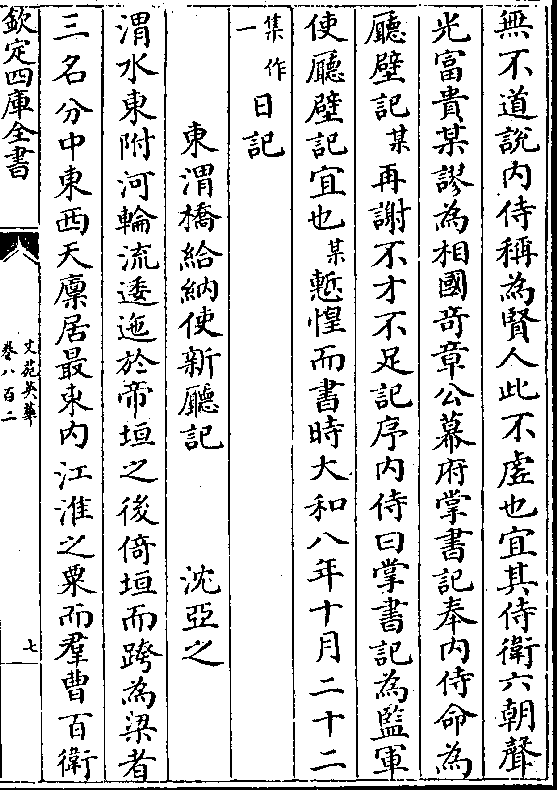 無不道說内侍稱為賢人此不虚也宜其侍衛六朝聲
光富貴某謬為相國奇章公幕府掌書記奉内侍命為
廳壁記某再謝不才不足記序内侍曰掌書記為監軍
使廳壁記宜也某慙惶而書時大和八年十月二十二
集作
一
日記
東渭橋給納使新廳記 沈亞之
渭水東附河輪流逶迤於帝垣之後倚垣而跨為梁者
三名分中東西天廩居最東内江淮之粟而羣曹百衛
欽定四庫全書
文苑英華
卷八百二
七